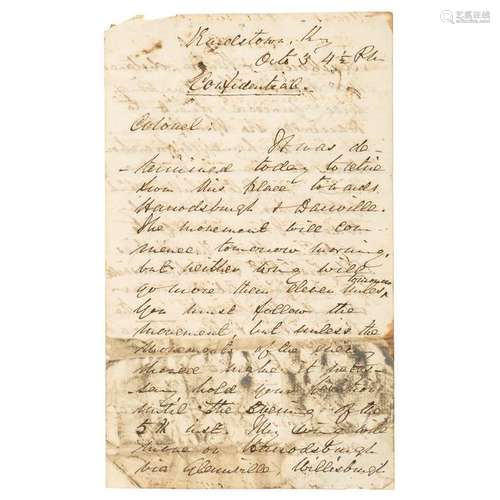 Bardstown, Ky
Octo 3 4½ Pm
Confidential.
Colonel:
It was de-
-termined today to retire
from this place towards
Harrodsburgh & Danville.
The movement will com-
mence tomorrow morning,
but neither wing will
tomorrow
go more than eleven miles.
You must follow the
movement but unless the
movements of the enemy
make it neces-
sary hold your position
until the evening of the
5th inst. My wing will
move on Harrodsburgh
via Glenville Willisburgh